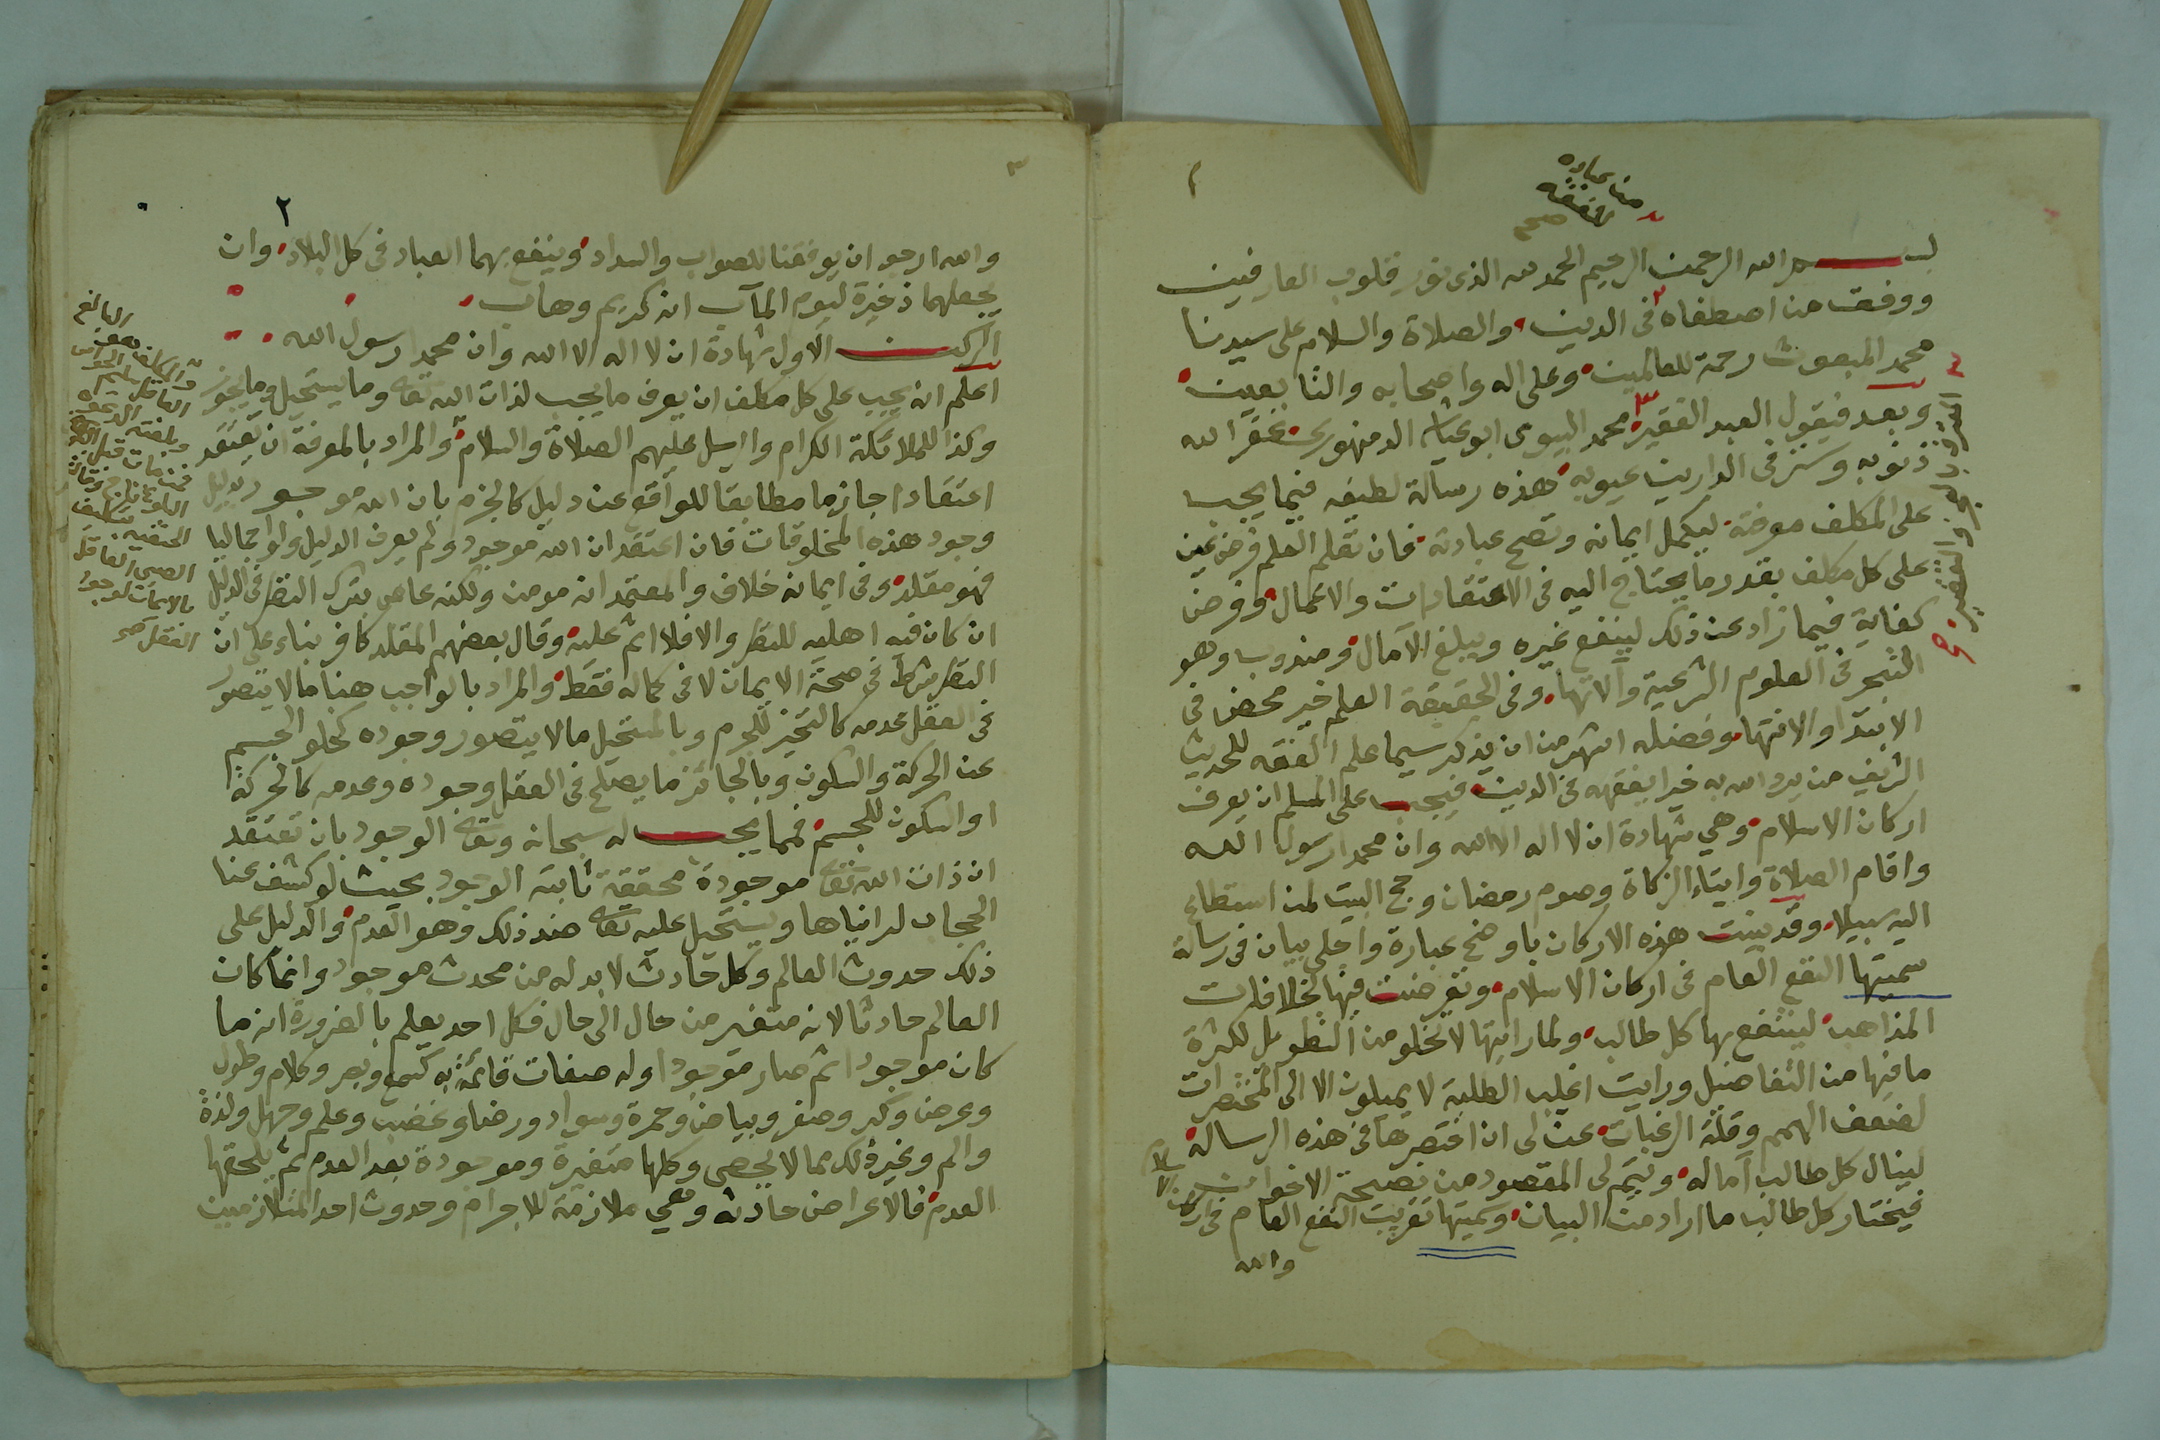 من عباده
لافقه
صح
بسم الله الرحمن الرحيم الحمد لله الذى نور قلوب العارفين
ووفق من اصطفاه فى الدين والصلاة والسلام على سيدنا
محمد المبعوث رحمة للعالمين وعلى اله واصحابه والتابعين
وبعد فيقول العبد الفقير محمد البيومى ابوعياشه الدمنهورى غفر الله
ذنوبه وستر فى الدارين عيوبه هذه رسالة لطيفه فيما يجب
على المكلف معرفته ليكمل ايمانه وتصح عبادته فان تعلم العلم فرض عين
على كل مكلف بقدر ما يحتاج اليه فى الاعتقادات والاعمال وفرض
كفاية فيما زاد عن ذلك لينفع غيره ويبلغ الآمال ومندوب وهو
التبحر فى العلوم الشرعية وآلاتها وفى الحقيقة العلم خير محض فى
الابتدا والانتها وفضله اشهر من ان يذكر سيما علم الفقه للحديث
الشريف من يرد الله به خيرا يفقهه فى الدين فيجب على المسلم ان يعرف
اركان الاسلام وهي شهادة ان لا اله الا الله وان محمدا رسول الله
واقام الصلاة وايتاء الزكاة وصوم رمضان وحج البيت لمن استطاع
اليه سبيلا وقد بينت هذه الاركان باوضح عبارة واجلى بيان فى رسالة
سميتها النفع العام فى اركان الاسلام وتعرضت فيها لخلافات
المذاهب لينتفع بها كل طالب ولما رايتها لا تخلو من التطويل لكثرة
ما فيها من التفاصيل ورايت اغلب الطلبة لا يميلون الا الى المختصرات
لضعف الهمم وقلة الرغبات عنّ لى ان اختصرها فى هذه الرسالة
لينال كل طالب آماله وليتم لى المقصود من نصيحة الاخوان
فيختار كل طالب ما اراد من البيان وسميتها تقريب النفع العام فى اركان الاسلام
والله
والله ارجو ان يوفقنا للصواب والسداد وينفع بهما العباد فى كل البلاد وان
يجعلهما ذخيرة ليوم المآب انه كريم وهاب
الركن الاول شهادة ان لا اله الا الله وان محمدا رسول الله
اعلم انه يجب على كل مكلف ان يعرف ما يجب لذات الله تعالى وما يستحيل وما يجوز
وكذا للملائكة الكرام والرسل عليهم الصلاة والسلام والمراد بالمعرفة ان يعتقد
اعتقادا جازما مطابقا للواقع عن دليل كالجزم بان الله موجود بدليل
وجود هذه المخلوقات فان اعتقد ان الله موجود ولم يعرف الدليل ولو اجماليا
فهو مقلد وفى ايمانه خلاف والمعتمد انه مومن ولكنه عاص بترك النظر فى الدليل
ان كان فيه اهلية للنظر والا فلا اثم عليه وقال بعضهم المقلد كافر بناء على ان
النظر شرط فى صحة الايمان لا فى كماله فقط والمراد بالواجب هنا ما لا يتصور
فى العقل عدمه كالتحيز للجرم وبالمستحيل ما لا يتصور وجوده كخلو الجسم
عن الحركة والسكون وبالجائز ما يصلح فى العقل وجوده وعدمه كالحركة
او السكون للجسم فمما يجب له سبحانه وتعالى الوجود بان تعتقد
ان ذات الله تعالى موجودة محققة ثابتة الوجود بحيث لو كشف عنا
الحجاب لرايناها ويستحيل عليه تعالى ضد ذلك وهو العدم والدليل على
ذلك حدوث العالم وكل حادث لا بد له من محدث موجود وانما كان
العالم حادثا لانه متغير من حال الى حال فكل احد يعلم بالضرورة انه ما
كان موجودا ثم صار موجودا وله صفات قائمة به كسمع وبصر وكلام وطول
وعرض وكبر وصغر وبياض وحمرة وسواد ورضا وغضب وعلم وجهل ولذة
والم وغير ذلك مما لا يحصى وكلها متغيرة وموجودة بعد العدم ثم يلحقها
العدم فالاعراض حادثه وهي ملازمة للاجرام وحدوث احد المتلازمين
والمكلف هو البالغ
العاقل سليم الحواس
وبلغته الدعوة
فمن مات قبل
البلوغ ناج وقالت
الحنفيه بتكليف
الصبى العاقل
بالايمان لوجود
العقل صح